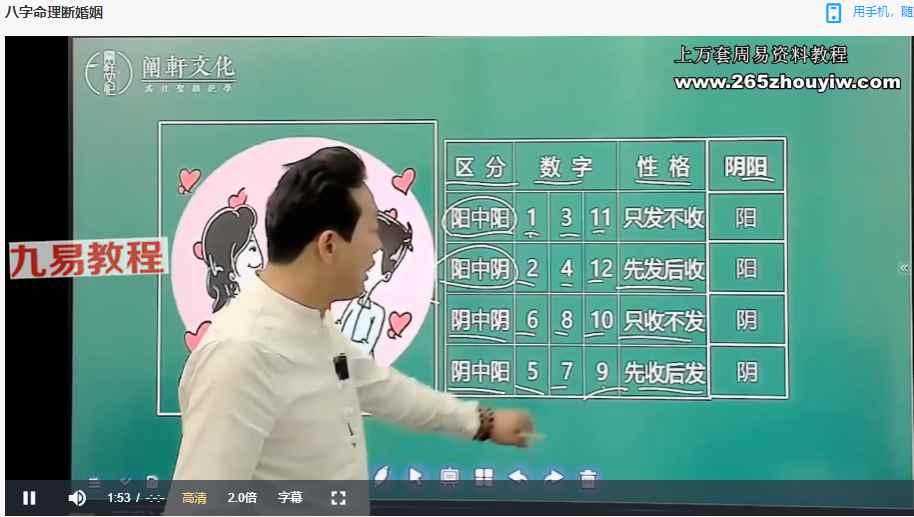 八字命理断婚姻
用手机，随
阐軒文化
上万套周易资料教程
www.265zhouyiw.com
区分 数字 性格 阴阳
阳中阳 1 3 11 只发不收 阳
阳中阴 2 4 12 先发后收 阳
阴中阴 6 8 10 只收不发 阴
阴中阳 5 7 9 先收后发 阴
九易教程
1:53 / -:-
高清
2.0倍
字幕